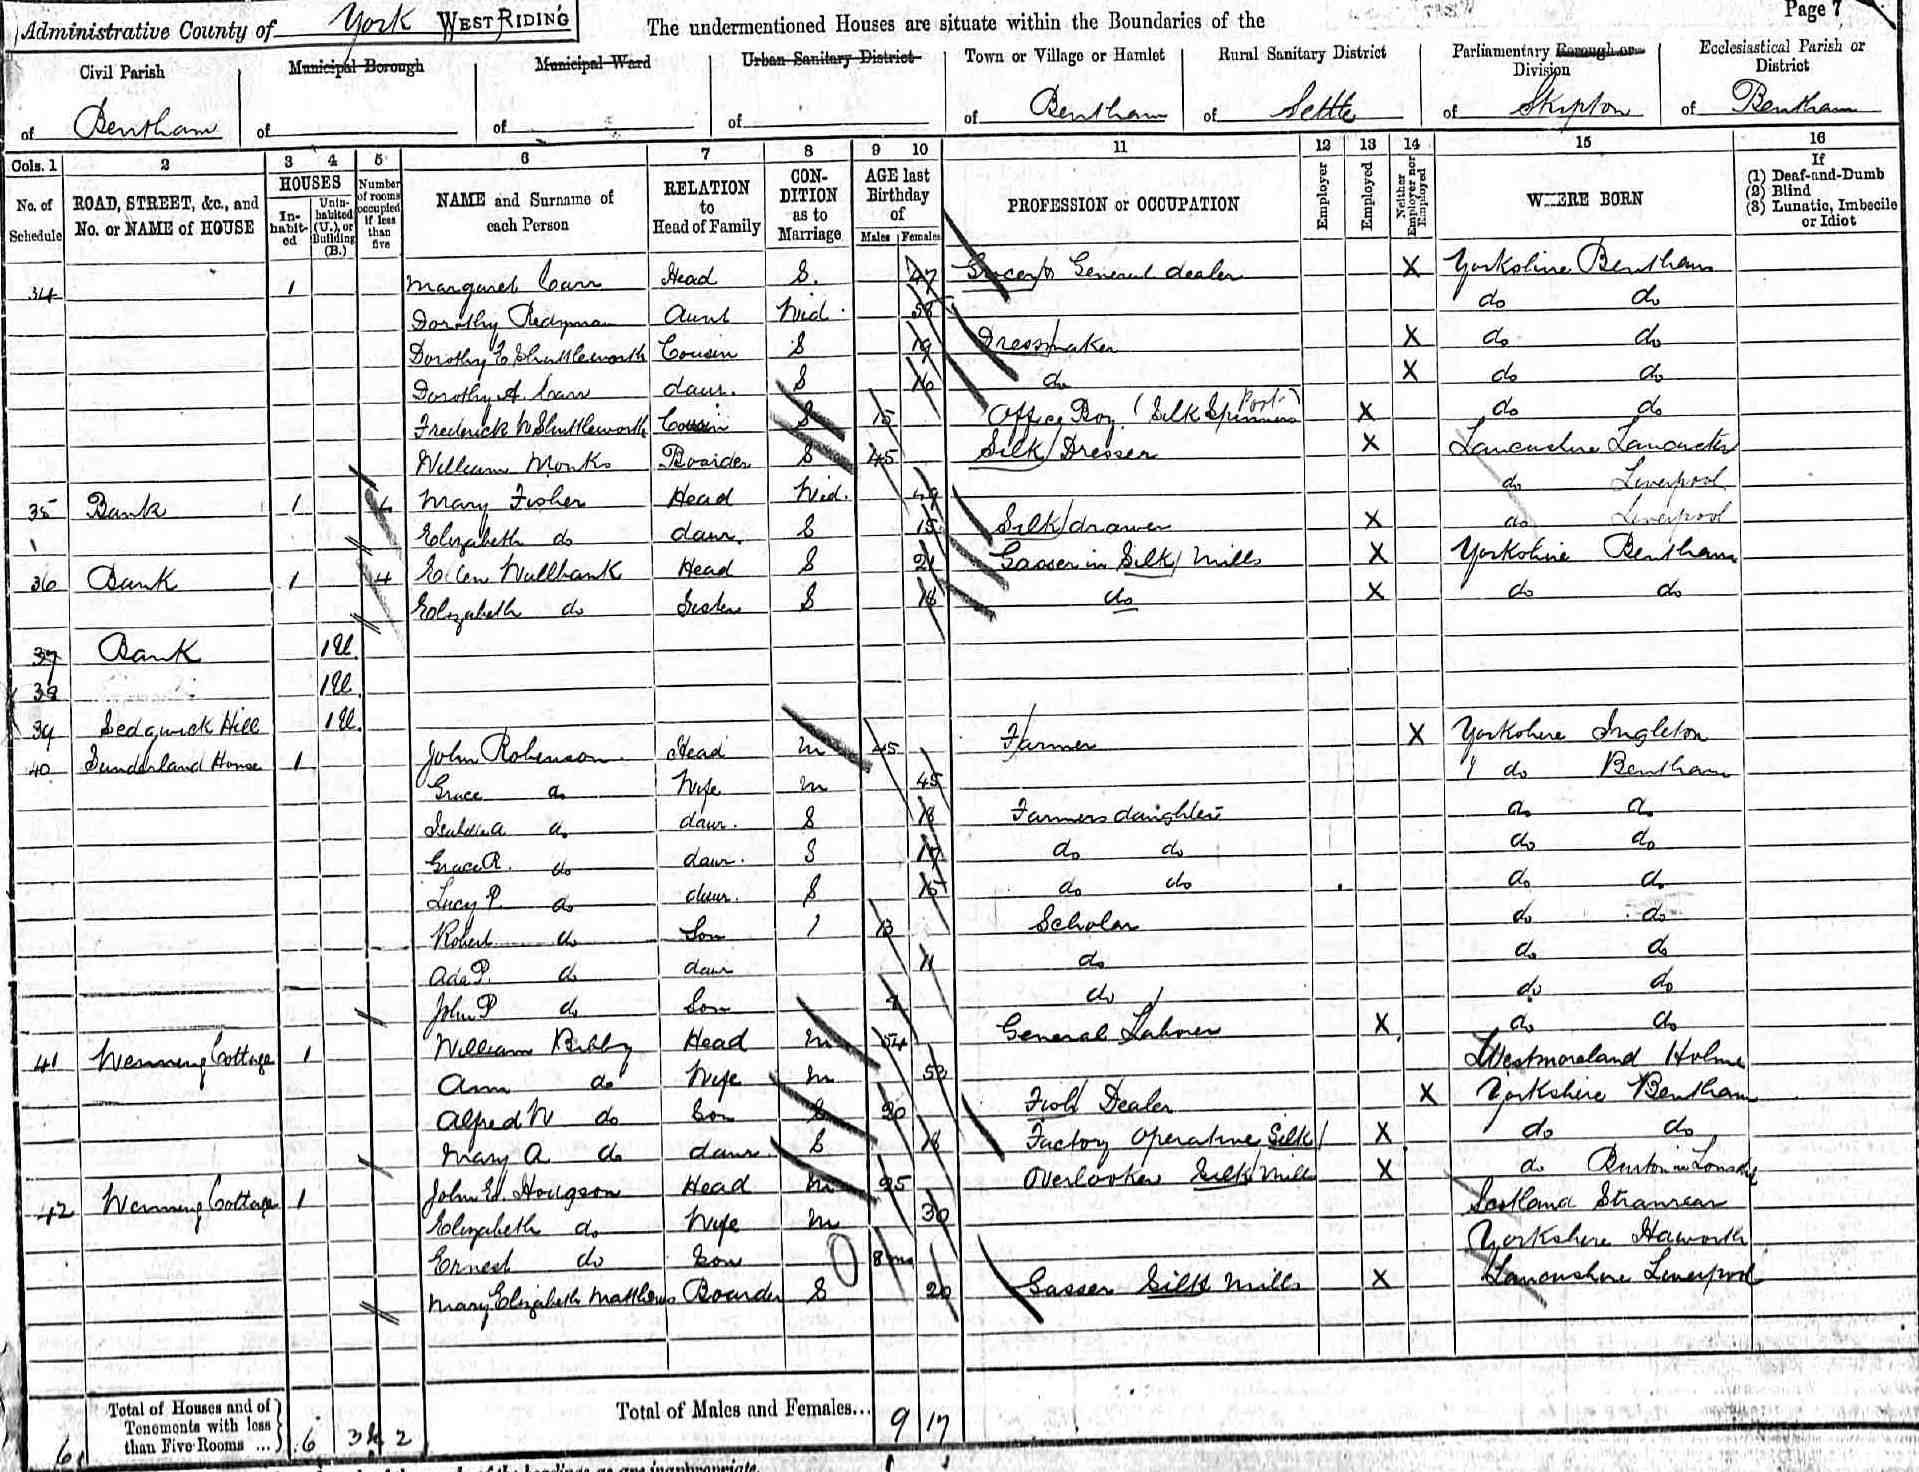 Page 7
Administrative County of York WEST RIDING The undermentioned Houses are situate within the Boundaries of the
Civil Parish of Bentham
Municipal Borough of
Municipal Ward of
Urban Sanitary District of
Town or Village or Hamlet of Bentham
Rural Sanitary District of Settle
Parliamentary Borough or Division of Skipton
Ecclesiastical Parish or District of Bentham
Cols. 1 2 3 4 5 6 7 8 9 10 11 12 13 14 15 16
No. of Schedule
ROAD, STREET, &c., and No. or NAME of HOUSE
HOUSES
In-habit-ed
Unin-habited (U.), or Building (B.)
Number of rooms occupied if less than five
NAME and Surname of each Person
RELATION to Head of Family
CON-DITION as to Marriage
AGE last Birthday of
Males Females
PROFESSION or OCCUPATION
Employer
Employed
Neither Employer nor Employed
WHERE BORN
If
(1) Deaf-and-Dumb
(2) Blind
(3) Lunatic, Imbecile or Idiot
34 1 Margaret Carr Head S. 47 Grocer & General dealer X Yorkshire Bentham
Dorothy Aunt Wid. 58 do do
Dorothy E Shuttleworth Cousin S 19 Dressmaker X do do
Dorothy A. Carr daur. S 16 do X do do
Frederick W Shuttleworth Cousin S 15 Office Boy (Silk Spinners X do do
William Monks Boarder S 45 Silk Dresser X Lancashire Lancaster
35 Bank 1 4 Mary Fisher Head Wid. 49 do Liverpool
Elizabeth do daur. S 15 Silk drawer X do Liverpool
36 Bank 1 4 Ellen Wullbank Head S 21 Gasser in Silk Mills X Yorkshire Bentham
Elizabeth do Sister S 18 do X do do
37 Bank 1U
38 1U
39 Sedgwick Hill 1U
40 Sunderland House 1 John Robinson Head M 45 Farmer X Yorkshire Ingleton
Grace do Wife M 45 do Bentham
Isabella do daur. S 18 Farmers daughter do do
Grace A. do daur. S 17 do do do do
Lucy P. do daur. S 15 do do do do
Robert do Son 13 Scholar do do
Ada P. do daur 11 do do do
John P do Son do do do
41 Wenning Cottage 1 William Bibby Head M 54 General Labourer X do do
Ann do Wife M 53 Westmoreland Holme
Alfred W do Son S 20 Fish Dealer X Yorkshire Bentham
Mary A do daur. S 18 Factory Operative Silk X do do
42 Wenning Cottage 1 John Ed. Hodgson Head M 25 Overlooker Silk Mill X do Burton in Lonsdale
Elizabeth do Wife M 30 Scotland Stranraer
Ernest do Son 8 mo Yorkshire Haworth
Mary Elizabeth Matthews Boarder S 20 Gasser Silk Mills X Lancashire Liverpool
Total of Houses and of Tenements with less than Five Rooms ... 6 3U 2
Total of Males and Females... 9 17